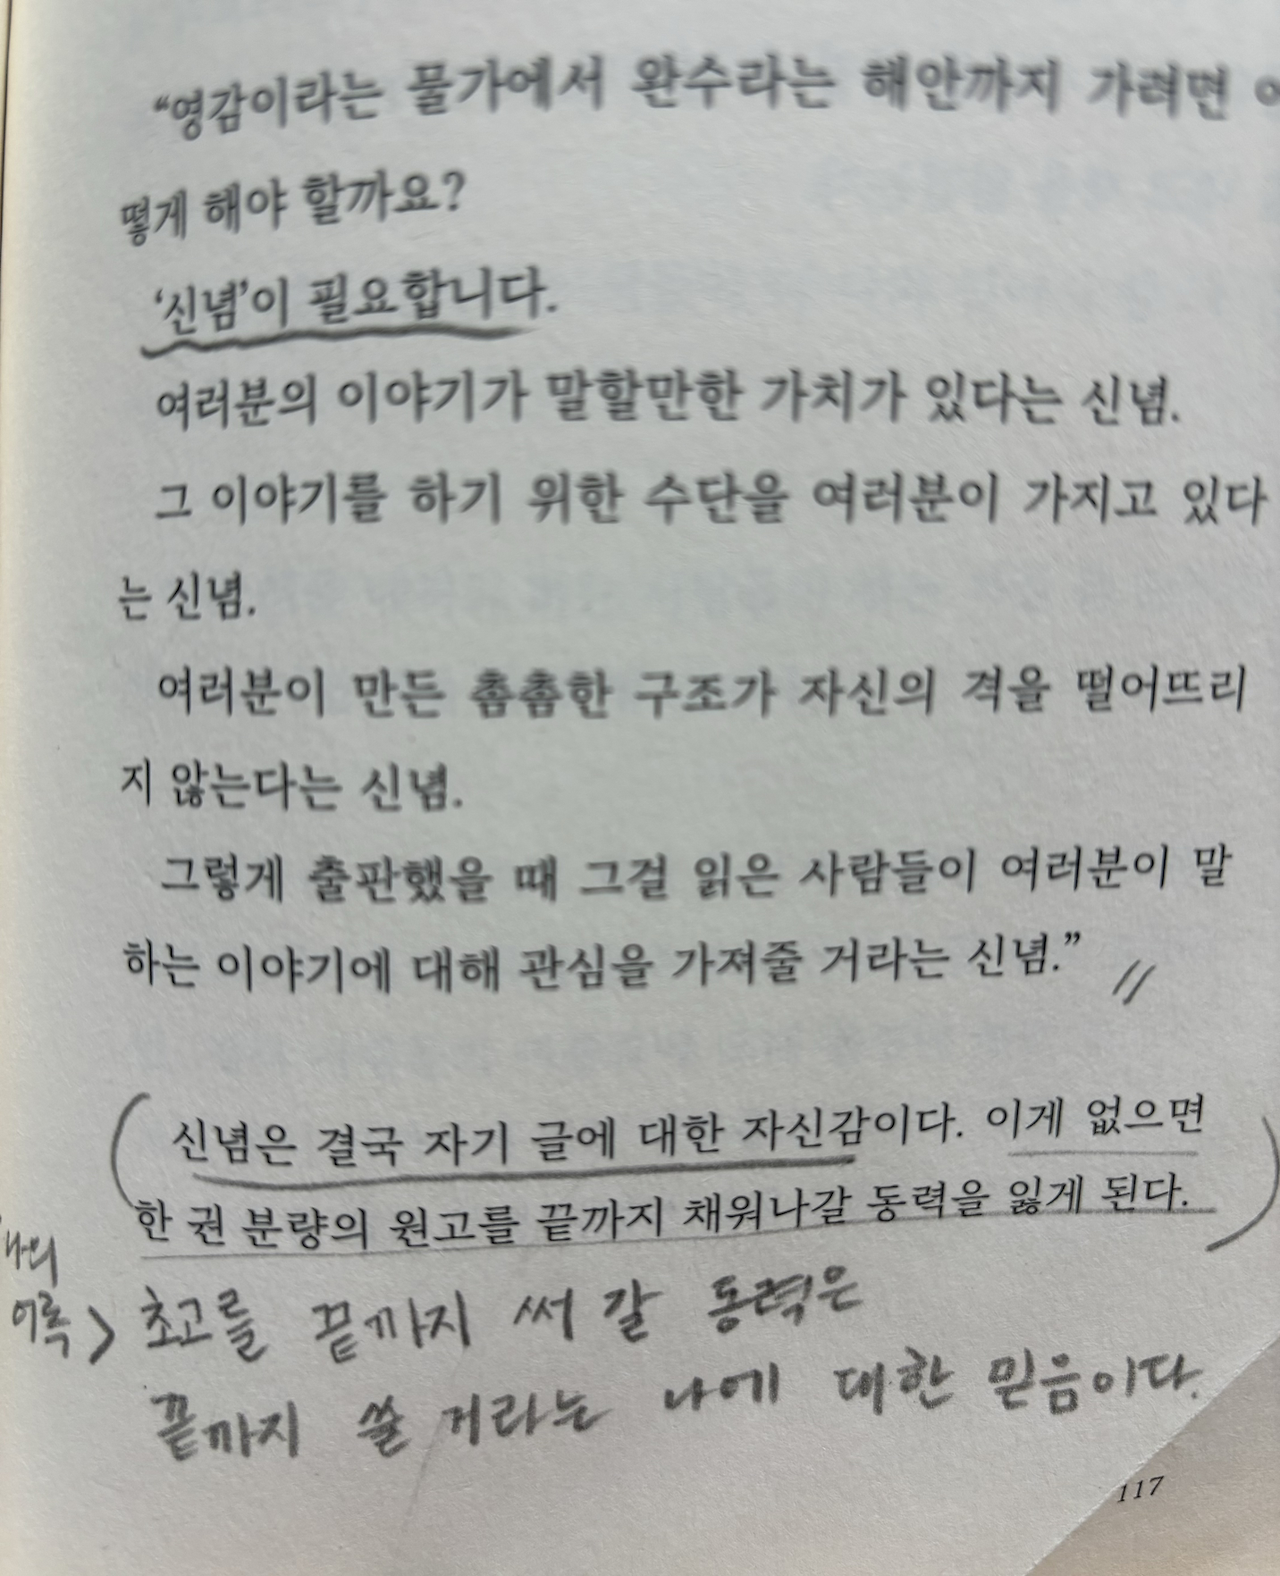 “영감이라는 물가에서 완수라는 해안까지 가려면 어
떻게 해야 할까요?
‘신념’이 필요합니다.
여러분의 이야기가 말할만한 가치가 있다는 신념.
그 이야기를 하기 위한 수단을 여러분이 가지고 있다
는 신념.
여러분이 만든 촘촘한 구조가 자신의 격을 떨어뜨리
지 않는다는 신념.
그렇게 출판했을 때 그걸 읽은 사람들이 여러분이 말
하는 이야기에 대해 관심을 가져줄 거라는 신념.”
신념은 결국 자기 글에 대한 자신감이다. 이게 없으면
한 권 분량의 원고를 끝까지 채워나갈 동력을 잃게 된다.
나의
어록 >
초고를 끝까지 써 갈 동력은
끝까지 쓸 거라는 나에 대한 믿음이다.
117